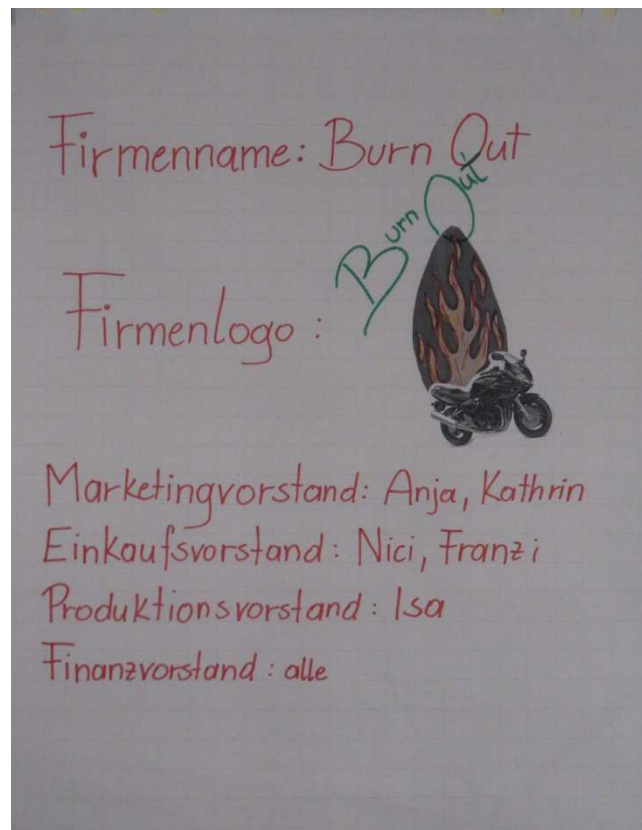 Firmenname: Burn Out
Burn Out
Firmenlogo:
Marketingvorstand: Anja, Kathrin
Einkaufsvorstand: Nici, Franzi
Produktionsvorstand: Isa
Finanzvorstand: alle